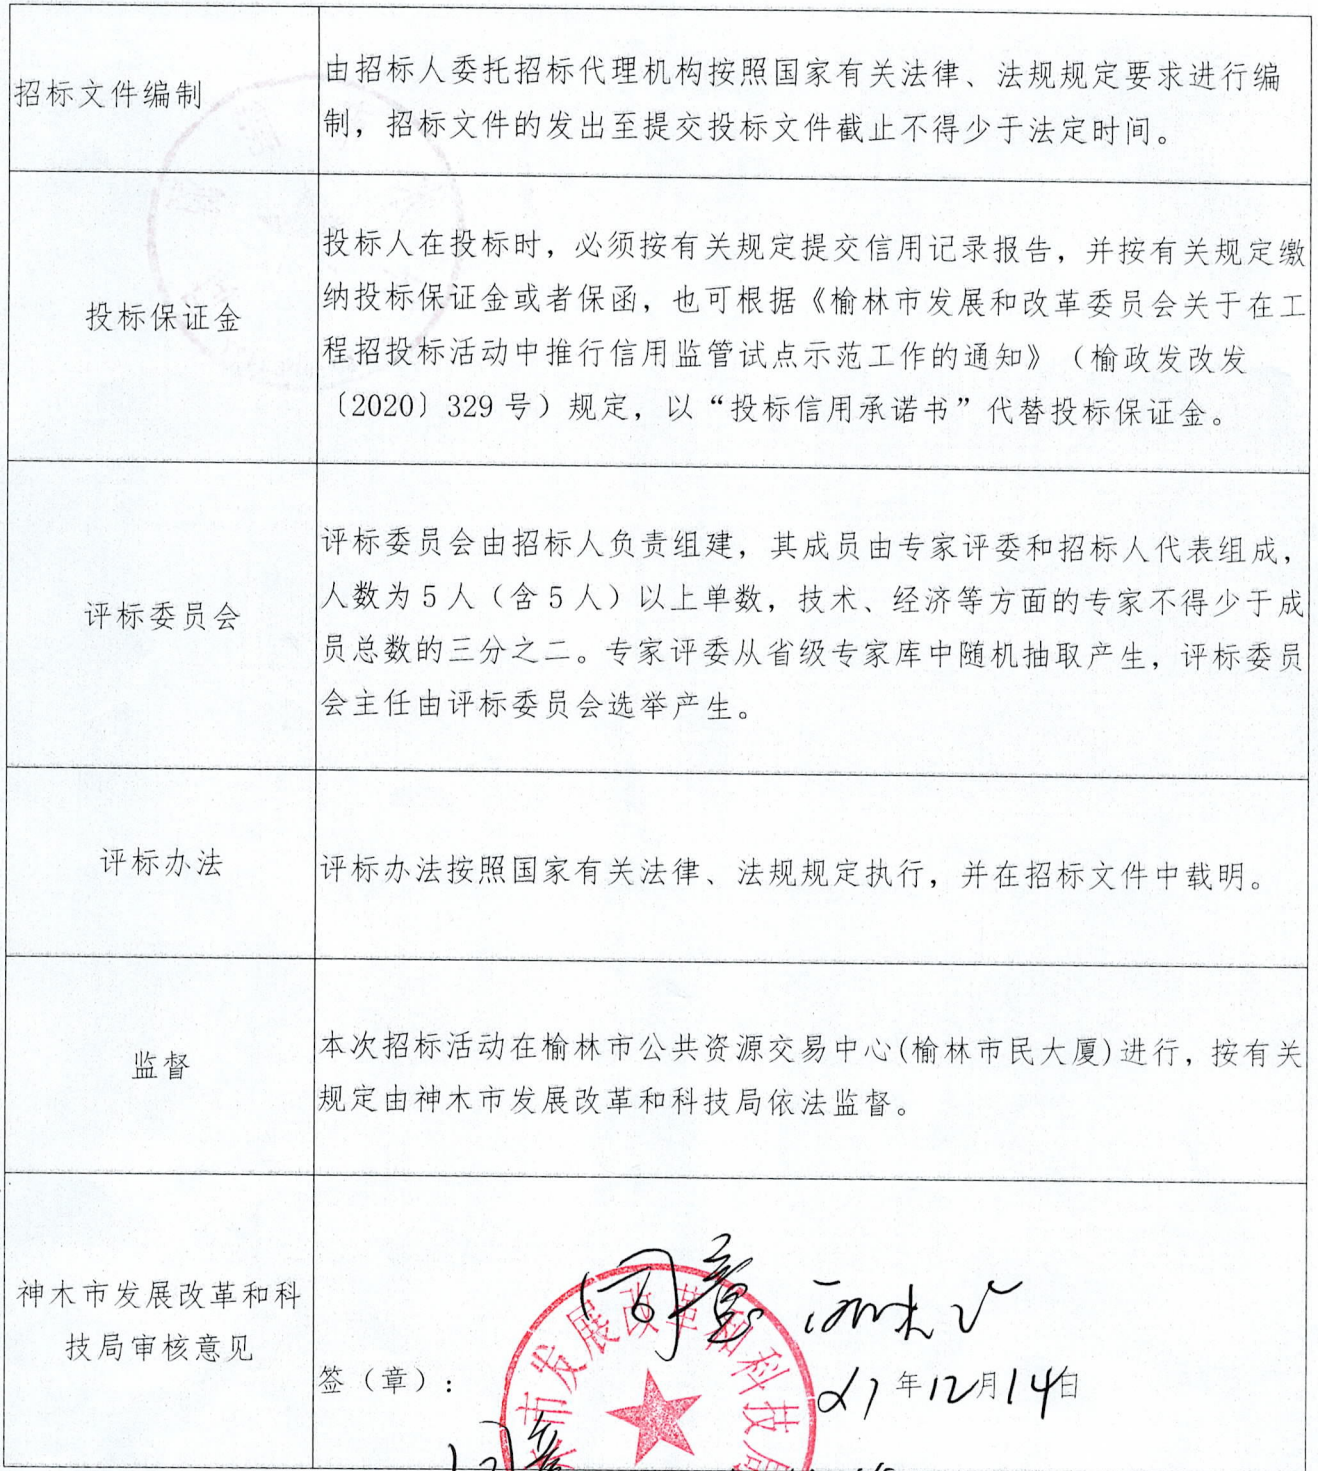 招标文件编制
由招标人委托招标代理机构按照国家有关法律、法规规定要求进行编
制，招标文件的发出至提交投标文件截止不得少于法定时间。
投标保证金
投标人在投标时，必须按有关规定提交信用记录报告，并按有关规定缴
纳投标保证金或者保函，也可根据《榆林市发展和改革委员会关于在工
程招投标活动中推行信用监管试点示范工作的通知》（榆政发改发
〔2020〕329号）规定，以“投标信用承诺书”代替投标保证金。
评标委员会
评标委员会由招标人负责组建，其成员由专家评委和招标人代表组成，
人数为5人（含5人）以上单数，技术、经济等方面的专家不得少于成
员总数的三分之二。专家评委从省级专家库中随机抽取产生，评标委员
会主任由评标委员会选举产生。
评标办法
评标办法按照国家有关法律、法规规定执行，并在招标文件中载明。
监督
本次招标活动在榆林市公共资源交易中心(榆林市民大厦)进行，按有关
规定由神木市发展改革和科技局依法监督。
神木市发展改革和科
技局审核意见
同意
签（章）：
21年12月14日
市发展改革和科技局
同意